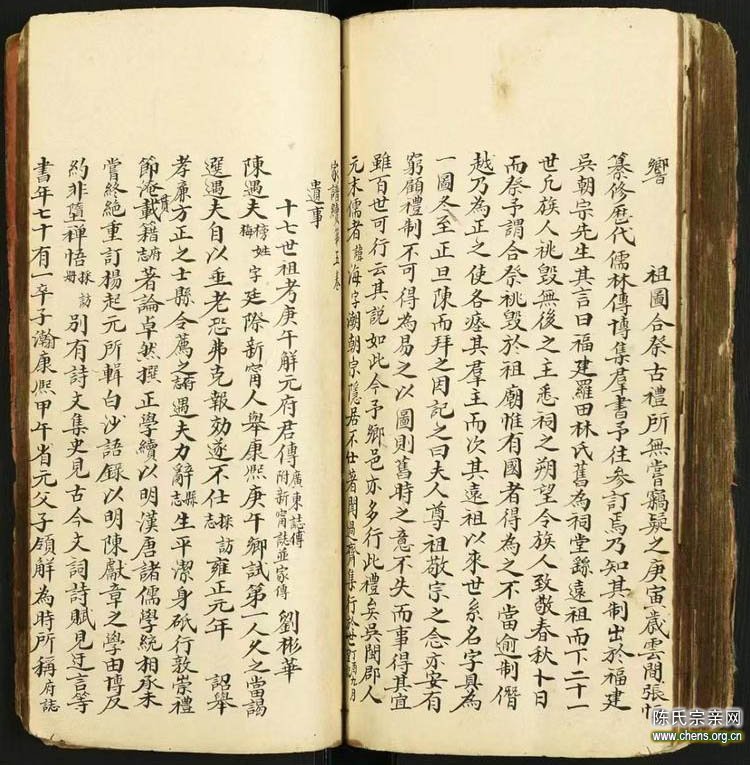 響
祖圖合祭古禮所無嘗竊疑之庚寅歲雲間張
纂修歷代儒林傳博集群書予往參訂焉乃知其制出於福建
吳朝宗先生其言曰福建羅田林氏舊為祠堂錄遠祖而下二十一
世凡族人祧毀無後之主悉祠之朔望令族人致敬春秋十日
而祭予謂合祭祧毀於祖廟惟有國者得為之不當逾制僭
越乃為正之使各瘞其羣主而次其遠祖以來世系名字具為
一圖冬至正旦陳而拜之因記之曰夫人尊祖敬宗之念亦安有
窮顧禮制不可得為易之以圖則舊時之意不失而事得其宜
雖百世可行云其說如此今予鄉邑亦多行此禮矣吳閩郡人
元末儒者 海字潮朝宗隱居不仕著聞過齋集行於世
家譜 第五卷
遺事
十七世祖考庚午解元府君傳 廣東誌傳 附新甯誌並家傳 劉彬華
陳遇夫 榜姓梅 字廷際新甯人舉康熙庚午鄉試第一人久之當謁
選遇夫自以垂老恐弗克報効遂不仕 採訪 雍正元年 詔舉
孝廉方正之士縣令薦之 府 遇夫力辭 縣志 生平潔身砥行敦崇禮
節淹 載籍 府志 著論卓然撰正學續以明漢唐諸儒學統相承未
嘗終絕重訂揚起元所輯白沙語錄以明陳獻章之學由博反
約非墮禪悟 採訪冊 別有詩文集史見古今文詞詩賦見迂言等
書年七十有一卒子瀚康熙甲午省元父子領解為時所稱 府誌
陈氏宗亲网
www.chens.org.cn